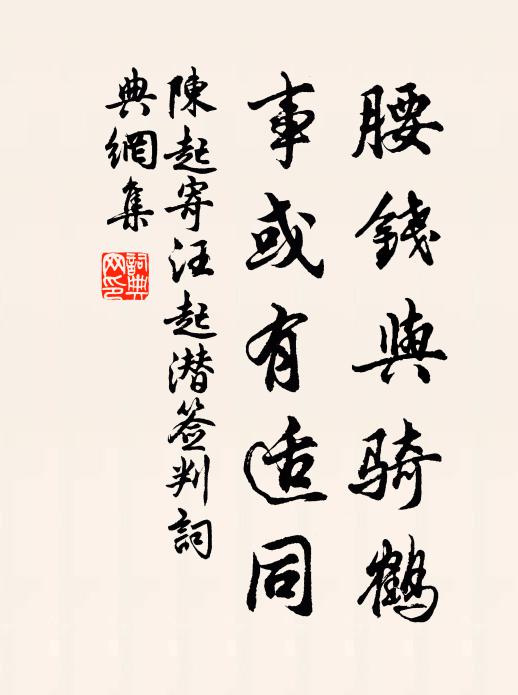 腰錢與騎鶴
事或有适同
陳起寄汪起潜签判詞
典網集
詞典网印